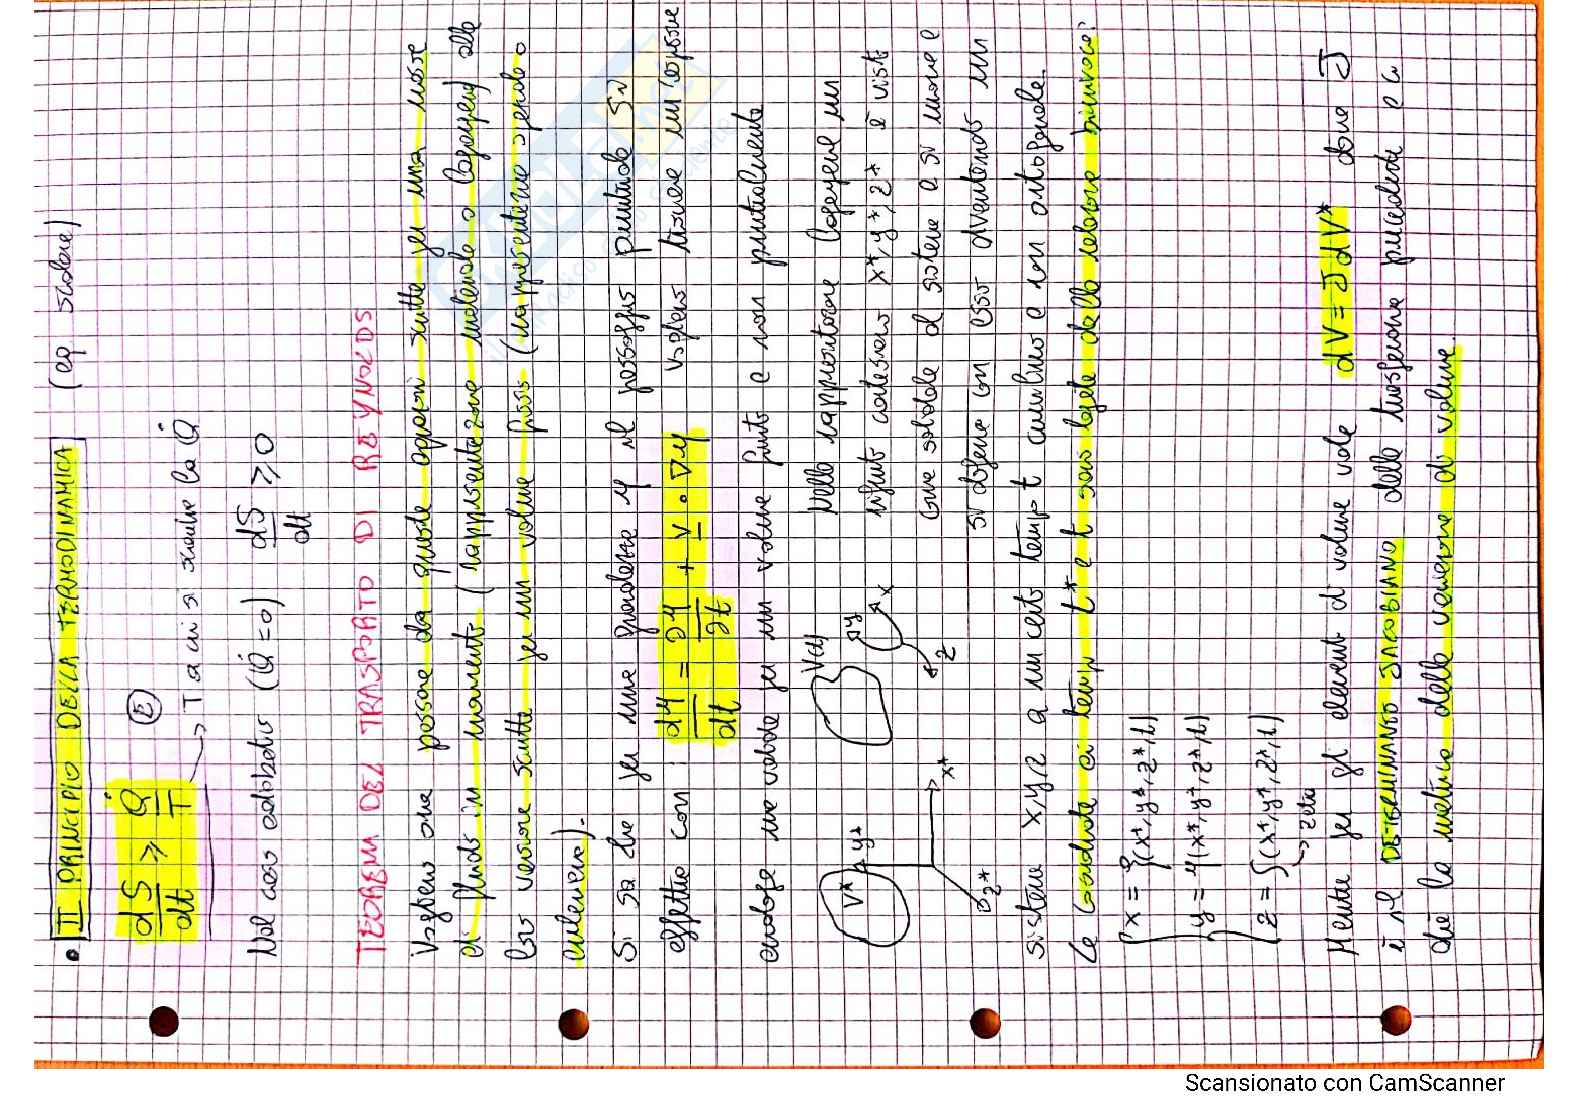 • II PRINCIPIO DELLA TERMODINAMICA (eq scalare)
dS/dt ≥ Q̇/T (E) → T a cui si scambia la Q̇
Nel caso adiabatico (Q̇=0) dS/dt ≥ 0
TEOREMA DEL TRASPORTO DI REYNOLDS
Vogliamo ora passare da queste equazioni scritte per una massa
di fluido in movimento (rappresentazione materiale o lagrangiana) alla
loro versione scritta per un volume fisso (rappresentazione spaziale o
euleriana).
Si sa che per una grandezza η il passaggio puntuale si
effettua con: dη/dt = ∂η/∂t + v · ∇η vogliamo trovare un'espressione
analoga ma valida per un volume finito e non puntualmente
V* y* x* z* V(t) y x z
Nella rappresentazione lagrangiana un
sistema cartesiano x*, y*, z* è visto
come solidale al sistema e si muove e
si deforma con esso diventando un
sistema x,y,z a un certo tempo t curvilineo e non ortogonale.
Le coordinate ai tempi t* e t sono legate dalla relazione biunivoca:
{ x = ξ(x*,y*,z*,t)
y = η(x*,y*,z*,t)
z = ζ(x*,y*,z*,t)
→ zeta
Mentre per gli elementi di volume vale dV = J dV* dove J
è il DETERMINANTO JACOBIANO della trasformazione precedente e ci
dà la metrica della variazione di volume.
Scansionato con CamScanner